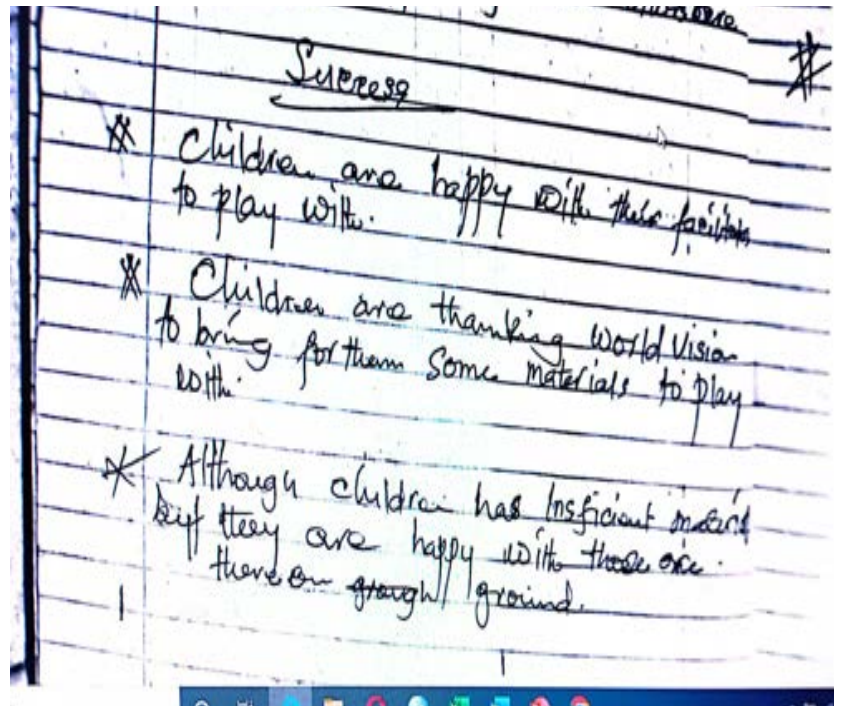 Success
Children are happy with their
to play with.
Children are thanking World Vision
to bring for them some materials to play
with.
Although children has Insficient
but they are happy with those
there on ground.